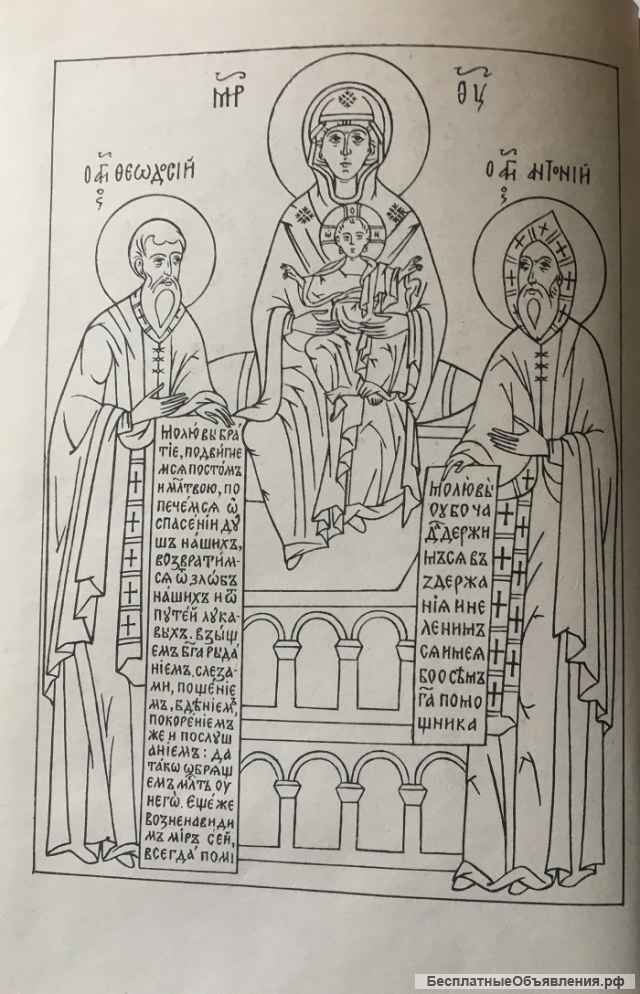 М҃Р Ѳ҃Ц
О А҃Г ѲЕѠДОСІЙ
ОС
О А҃Г АНТОНІЙ
ОС
Ѡ О Н
МОЛЮ ВЫ БРА
ТІЕ, ПОДВИГНЕ
МСЯ ПОСТОМЪ
И МЛ҃ТВОЮ, ПО
ПЕЧЕМСЯ Ѿ
СПАСЕНІИ ДУ
ШЪ НАШИХЪ,
ВОЗВРАТИМ-
СЯ Ѿ ЗЛОБЪ
НАШИХЪ И Ѿ
ПУТЕЙ ЛУКА-
ВЫХЪ. ВЗЫЩ
ЕМЪ БГ҃А РЫДА
НІЕМЪ. СЛЕЗА-
МИ, ПОЩЕНІЕ
МЪ, БДѢНІЕМЪ,
ПОКОРЕНІЕМЪ
ЖЕ И ПОСЛУШ
АНІЕМЪ: ДА
ТАКѠ ѠБРЯЩ
ЕМЪ МЛ҃ТЬ ОУ
НЕГѠ. ЕЩЕ ЖЕ
ВОЗНЕНАВИДИ
МЪ МІРЪ СЕЙ,
ВСЕГДА ПОМІ
МОЛЮ ВЫ
ОУБО ЧА
Д҃А ДЕРЖИ
МЪСЯ ВЪ
ZДЕРЖА
НІЯ И НЕ
ЛЕНИМЪ
СЯ ИМЕЯ
БО О СЕМЪ
Г҃А ПОМО
ЩНИКА
БесплатныеОбъявления.рф